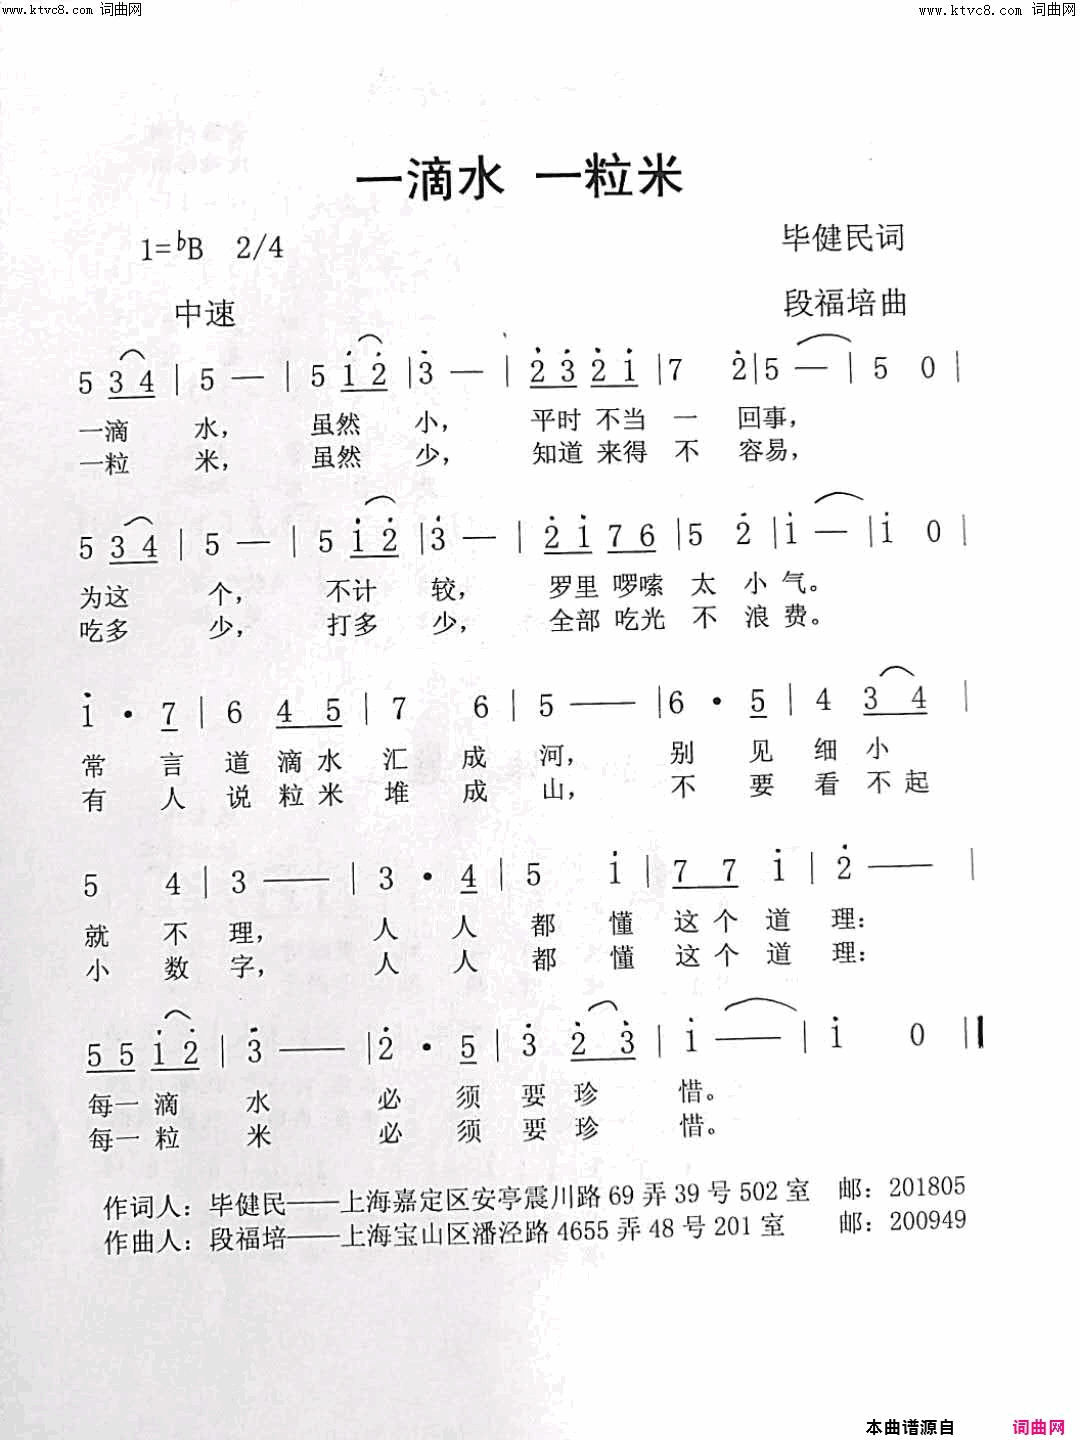 www.ktvc8.com 词曲网 www.ktvc8.com 词曲网
一滴水 一粒米
1=ᵇB 2/4
毕健民词
中速
段福培曲
5 3 4 | 5 — | 5 i̇ 2̇ | 3̇ — | 2̇ 3̇ 2̇ i̇ | 7 2̇ | 5 — | 5 0 |
一滴 水， 虽然 小， 平时 不当 一 回事，
一粒 米， 虽然 少， 知道 来得 不 容易，
5 3 4 | 5 — | 5 i̇ 2̇ | 3̇ — | 2̇ i̇ 7 6 | 5 2̇ | i̇ — | i̇ 0 |
为这 个， 不计 较， 罗里 啰嗦 太 小 气。
吃多 少， 打多 少， 全部 吃光 不 浪 费。
i̇ · 7 | 6 4 5 | 7 6 | 5 —— | 6 · 5 | 4 3 4 |
常 言 道 滴 水 汇 成 河， 别 见 细 小
有 人 说 粒 米 堆 成 山， 不 要 看 不 起
5 4 | 3 —— | 3 · 4 | 5 i̇ | 7 7 i̇ | 2̇ —— |
就 不 理， 人 人 都 懂 这 个 道 理：
小 数 字， 人 人 都 懂 这 个 道 理：
5 5 i̇ 2̇ | 3̇ —— | 2̇ · 5 | 3̇ 2̇ 3̇ | i̇ —— | i̇ 0 ‖
每一 滴 水 必 须 要 珍 惜。
每一 粒 米 必 须 要 珍 惜。
作词人：毕健民——上海嘉定区安亭震川路 69 弄 39 号 502 室 邮：201805
作曲人：段福培——上海宝山区潘泾路 4655 弄 48 号 201 室 邮：200949
本曲谱源自 词曲网